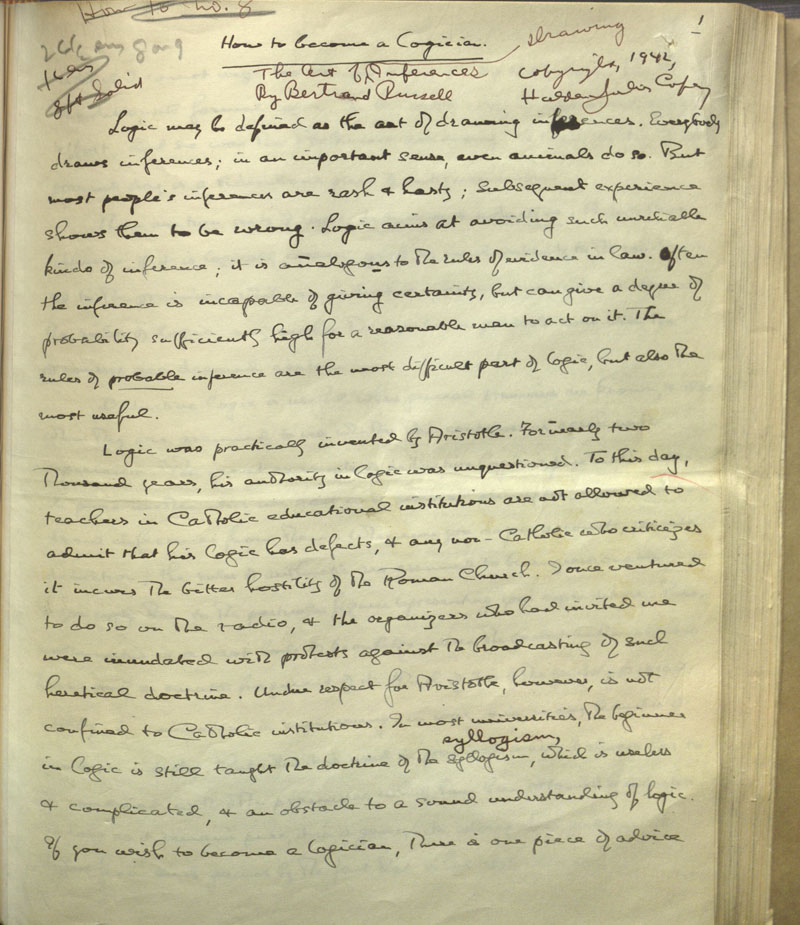 How to No. 8
1
How to become a Logician.
drawing
The Art of Inferences
Copyright, 1942,
8pt Solid
By Bertrand Russell
Haldeman-Julius Copy
Logic may be defined as the art of drawing inferences. Everybody
draws inferences; in an important sense, even animals do so. But
most people's inferences are rash & hasty; subsequent experience
shows them to be wrong. Logic aims at avoiding such unreliable
kinds of inference; it is analogous to the rules of evidence in law. Often
the inference is incapable of giving certainty, but can give a degree of
probability sufficiently high for a reasonable man to act on it. The
rules of probable inference are the most difficult part of logic, but also the
most useful.
Logic was practically invented by Aristotle. For nearly two
thousand years, his authority in logic was unquestioned. To this day,
teachers in Catholic educational institutions are not allowed to
admit that his logic has defects, & any non-Catholic who criticizes
it incurs the bitter hostility of the Roman Church. I once ventured
to do so on the radio, & the organizers who had invited me
were inundated with protests against the broadcasting of such
heretical doctrine. Undue respect for Aristotle, however, is not
confined to Catholic institutions. In most universities, the beginner
syllogism,
in logic is still taught the doctrine of the syllogism, which is useless
& complicated, & an obstacle to a sound understanding of logic.
If you wish to become a logician, there is one piece of advice